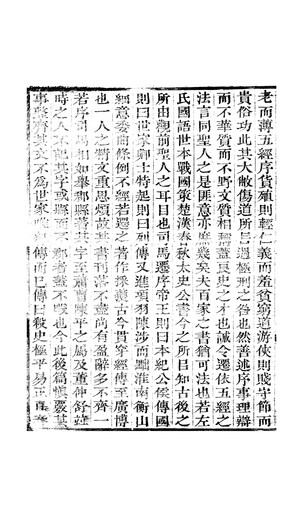 老而薄五經序貨殖則輕仁義而羞貧窮道游俠則賤守節而
貴俗功此其大敝傷道所㠯遇極刑之咎也然善述序事理辯
而不華質而不野文質相稱蓋良史之才也誠令遷依五經之
法言同聖人之是非意亦庶幾矣夫百家之書猶可法也若左
氏國語世本戰國策楚漢春秋太史公書今之所㠯知古後之
所由觀前聖人之耳目也司馬遷序帝王則曰本紀公侯傳國
則曰世家卿士特起則曰列傳又進項羽陳涉而黜淮南衡山
細意委曲條例不經若遷之著作採獲古今貫穿經傳至廣博
也一人之精文重思煩故其書刊落不盡尚有盈辭多不齊一
若序司馬相如舉郡縣著其字至蕭曹陳平之屬及董仲舒並
時之人不記其字或縣而不郡者蓋不暇也今此後篇慎覈其
事整齊其文不為世家唯紀傳而已傳曰殺史極平易正直春